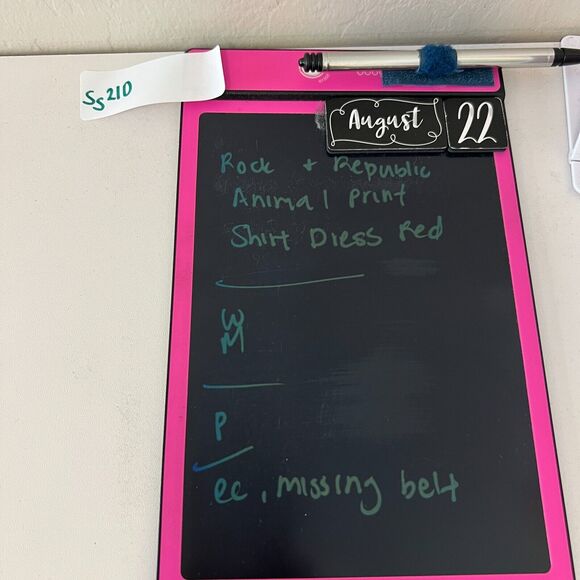 Ss210
August 22
Rock + Republic
Animal print
Shirt Dress Red
W
M
P
ee, missing belt